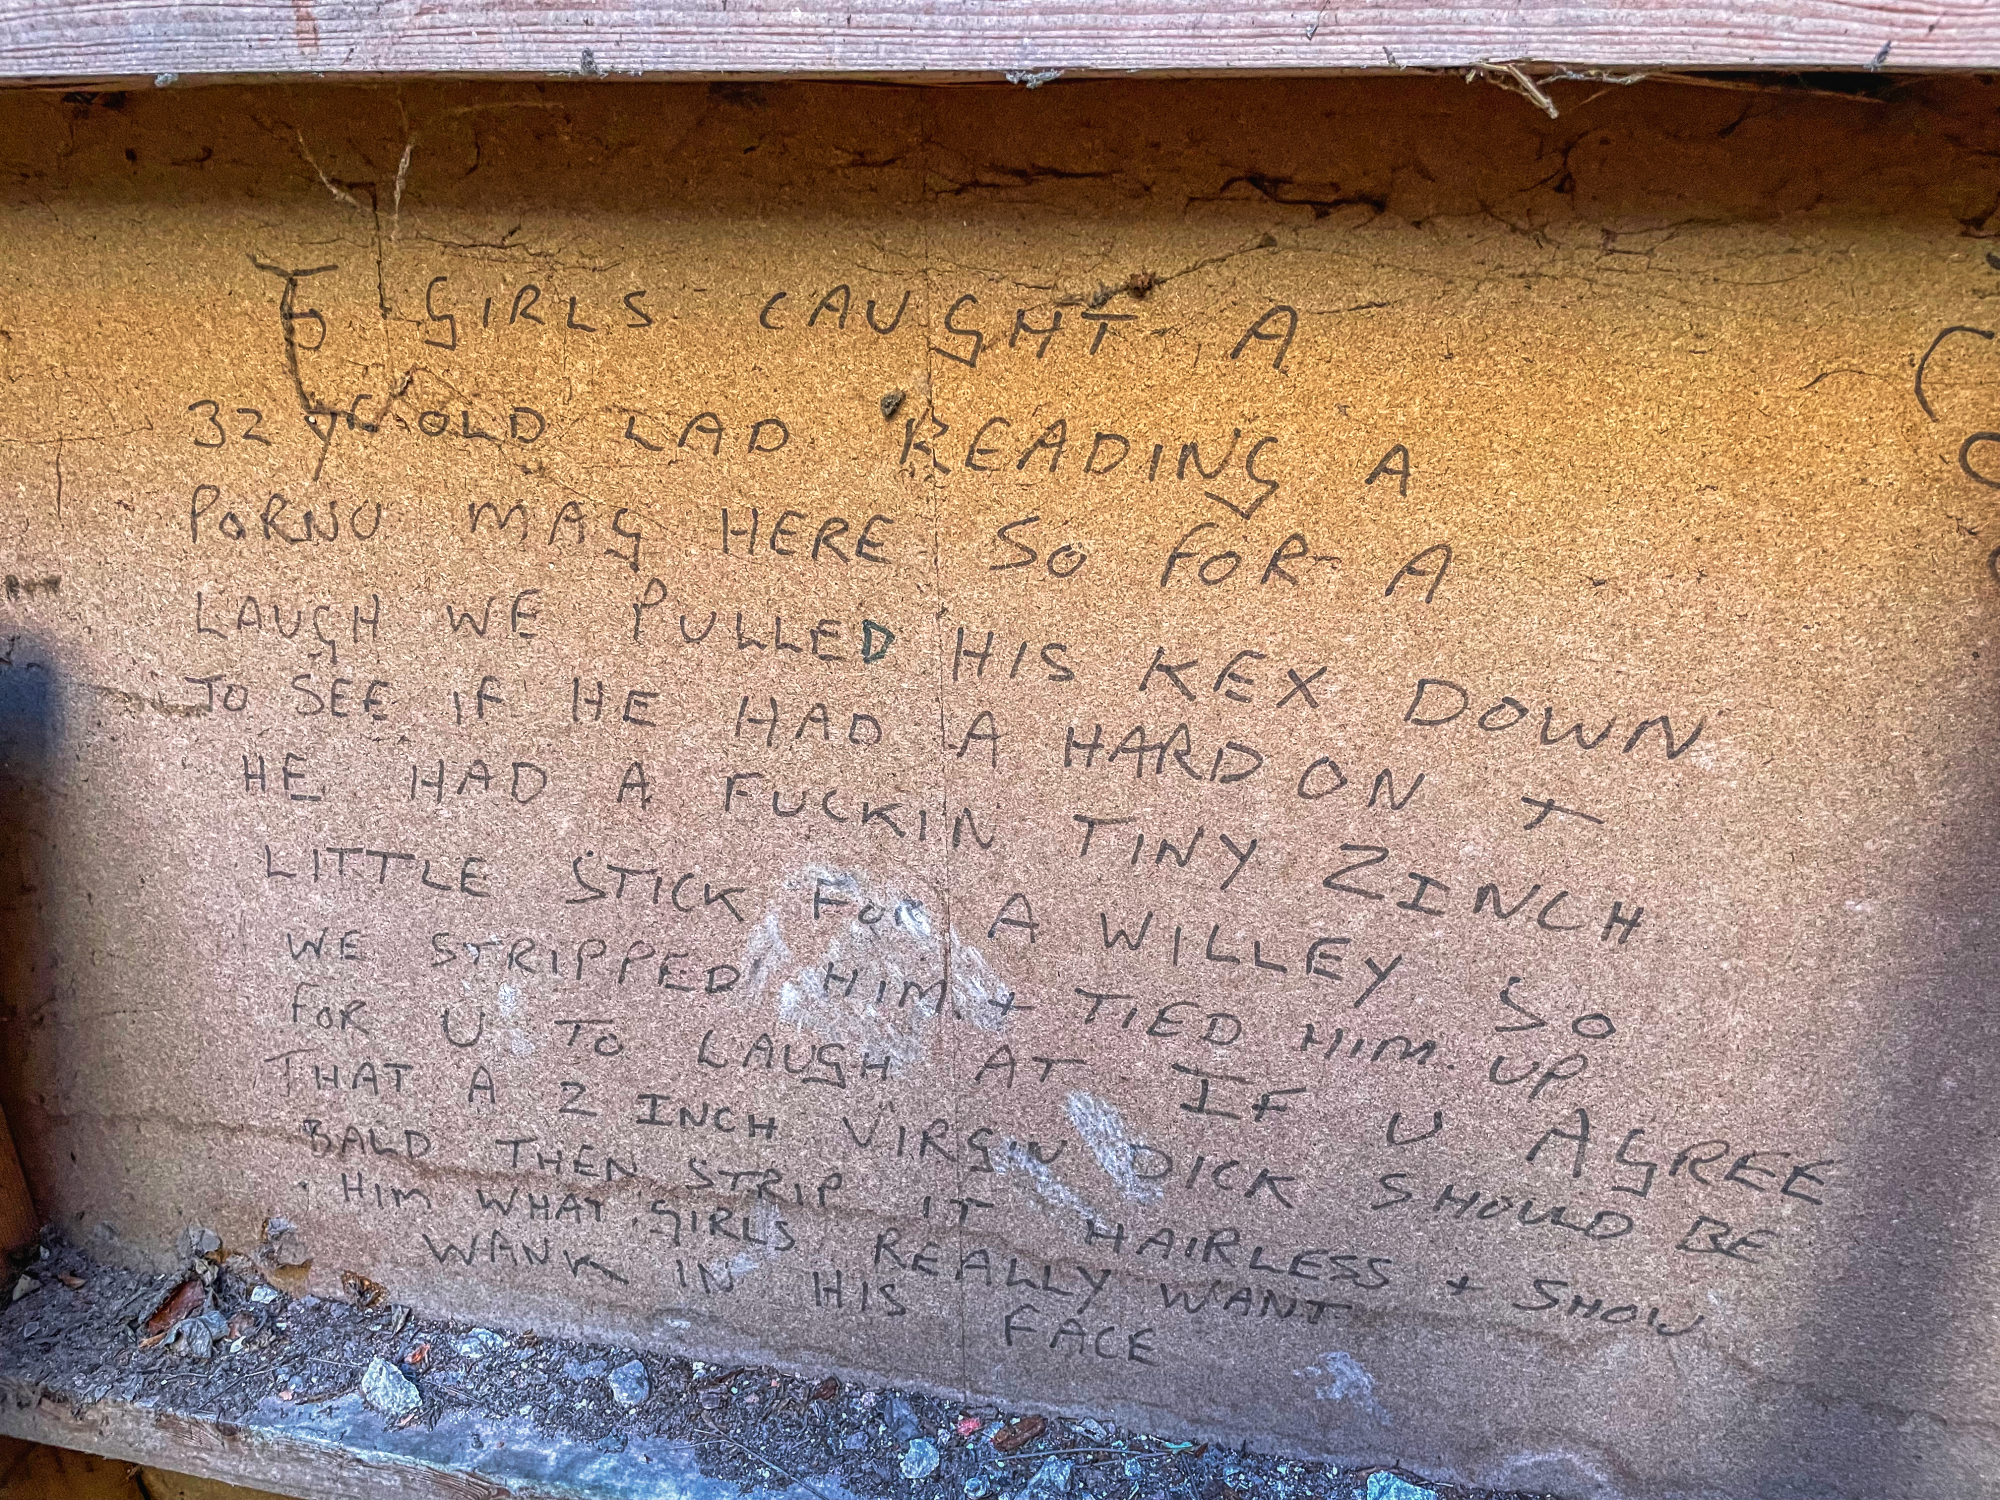 5 GIRLS CAUGHT A
32 YR OLD LAD READING A
PORNO MAG HERE SO FOR A
LAUGH WE PULLED HIS KEX DOWN
TO SEE IF HE HAD A HARD ON +
HE HAD A FUCKIN TINY 2INCH
LITTLE STICK FOR A WILLEY SO
WE STRIPPED HIM + TIED HIM UP
FOR U TO LAUGH AT IF U AGREE
THAT A 2 INCH VIRGIN DICK SHOULD BE
BALD THEN STRIP IT HAIRLESS + SHOW
HIM WHAT GIRLS REALLY WANT
WANK IN HIS FACE